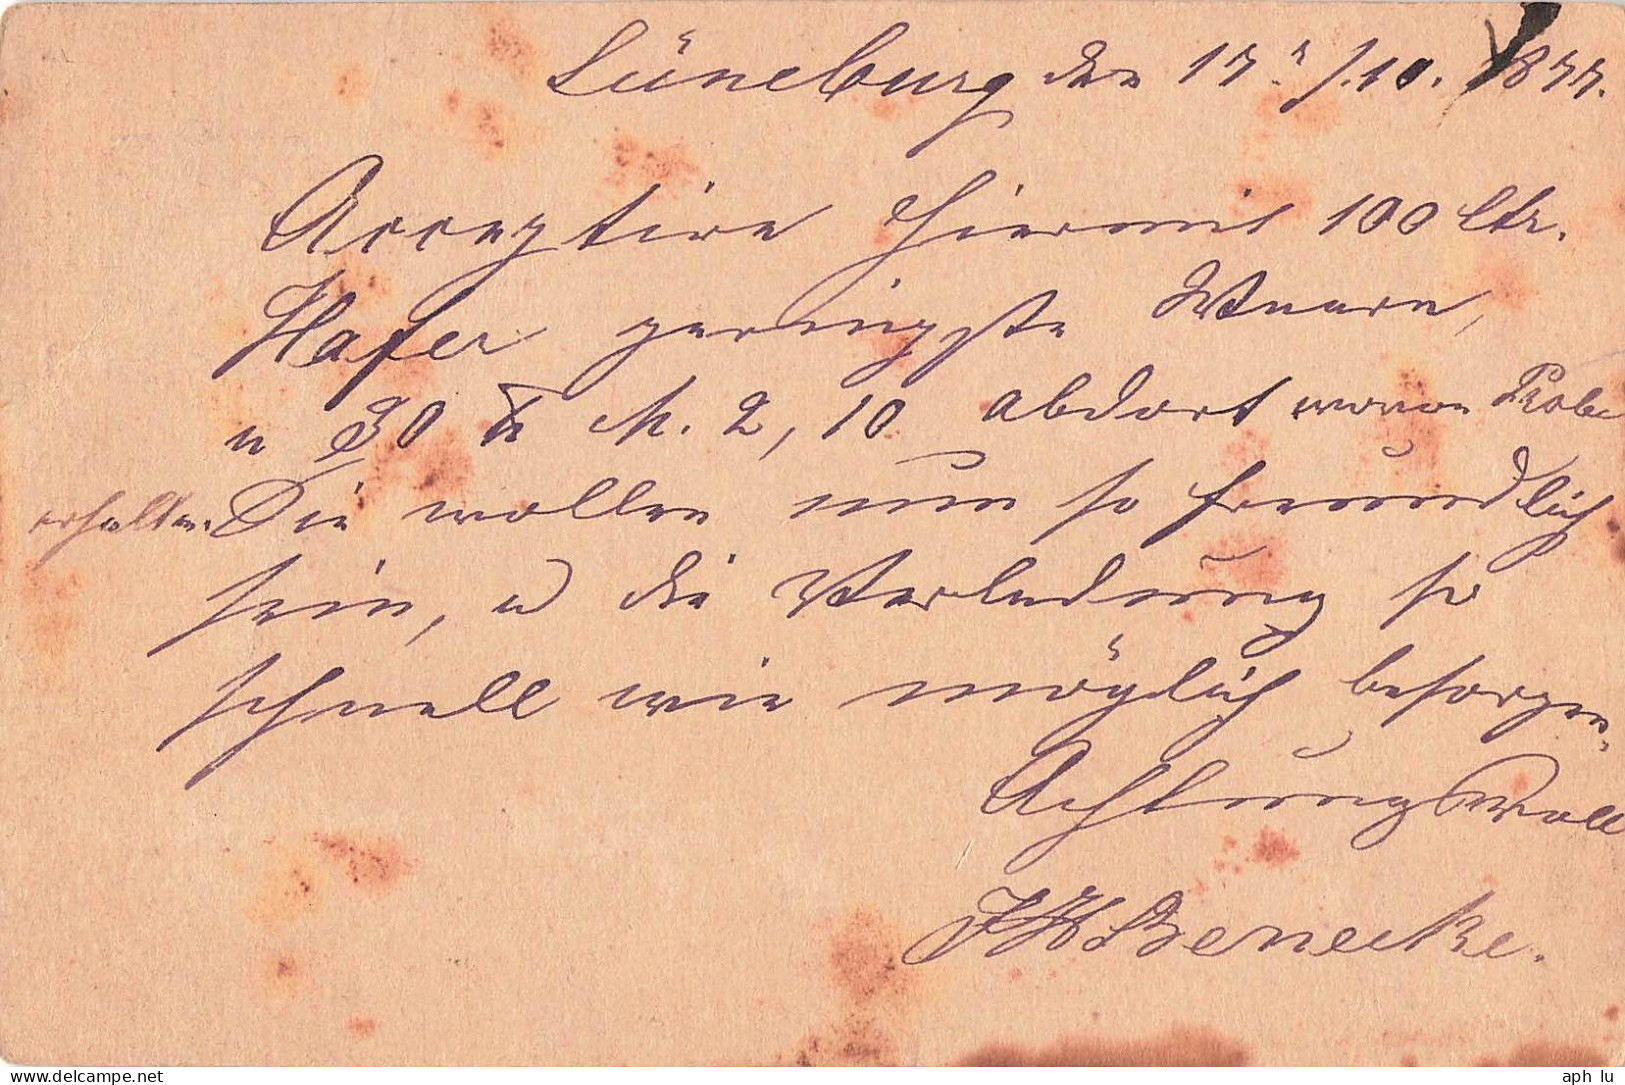 Lüneburg den 17. /.10. 1877.
Acceptire hiermit 100 Ctr.
Hafer geringste Waare,
a 30 ℔ M. 2,10 abdort wovon Probe
erhalten. Sie wollen nun so freundlich
sein, u die Verladung so
schnell wie möglich besorgen.
Achtungsvoll
JHBenecke.
www.delcampe.net
aph lu